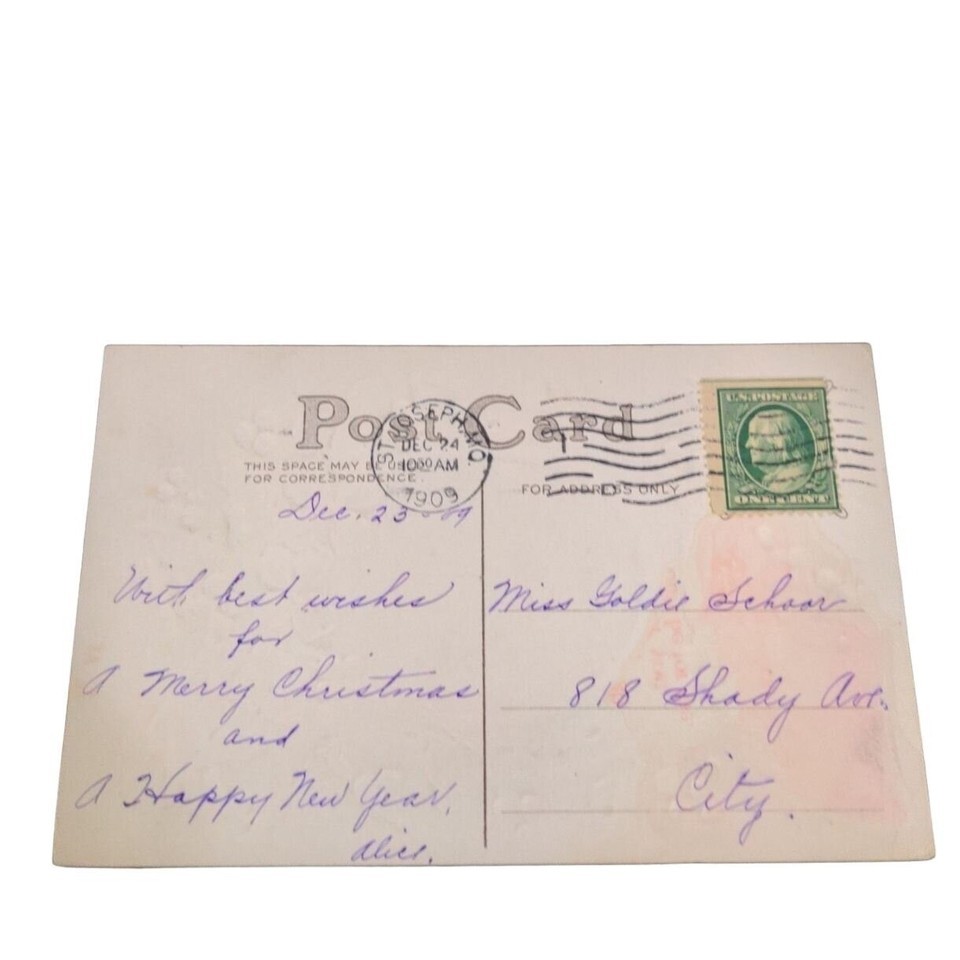 Post Card
THIS SPACE MAY BE USED
FOR CORRESPONDENCE.
FOR ADDRESS ONLY
ST. JOSEPH, MO.
DEC 24
10:30 AM
1909
U.S. POSTAGE
Dec. 23-09
With best wishes
for
A Merry Christmas
and
A Happy New Year.
Alice.
Miss Goldie Schoor
818 Shady Ave.
City.